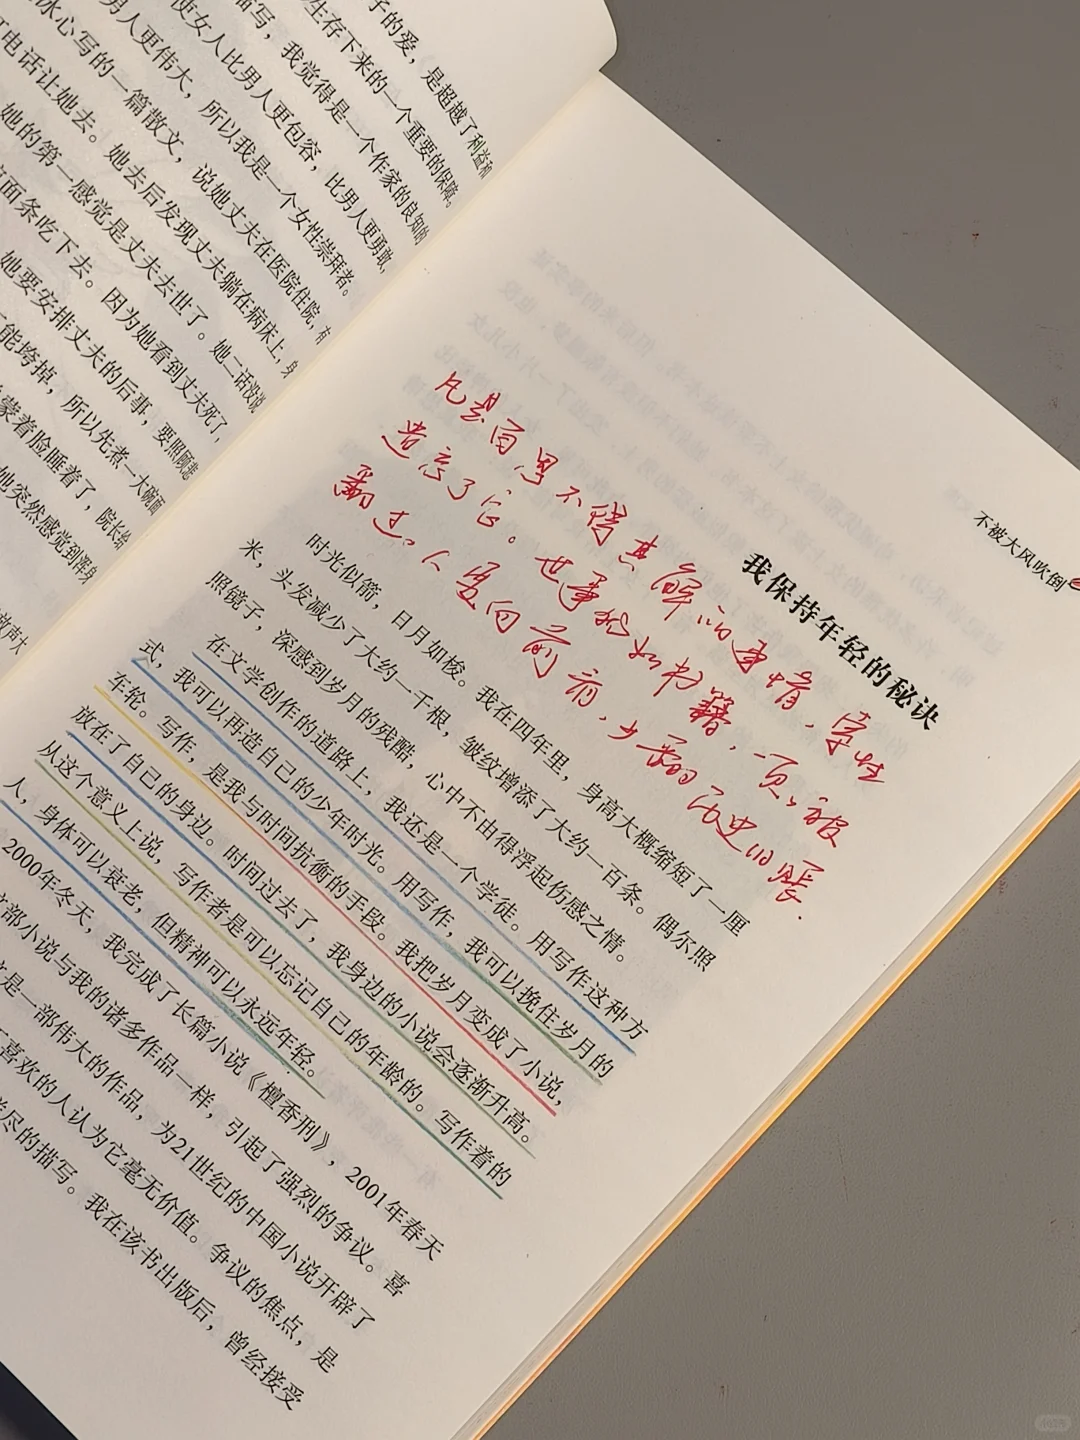 子的爱，是超越了利益和
生存下来的一个重要的保障。
描写，我觉得是一个作家的良知的
使女人比男人更包容，比男人更勇敢，
男人更伟大，所以我是一个女性崇拜者。
冰心写的一篇散文，说她丈夫在医院住院，有
电话让她去。她去后发现丈夫躺在病床上，身
她的第一感觉是丈夫去世了。她二话没说
面条吃下去。因为她看到丈夫死了，
她要安排丈夫的后事，要照顾悲
能垮掉，所以先煮一大碗面
蒙着脸睡着了，院长给
她突然感觉到浑身
放声大
不被大风吹倒
我保持年轻的秘诀
凡是百思不得其解的事情，索性
遗忘了它。世事犹如书籍，一页页被
翻过。人要向前看，少翻历史旧账。
时光似箭，日月如梭。我在四年里，身高大概缩短了一厘
米，头发减少了大约一千根，皱纹增添了大约一百条。偶尔照
照镜子，深感到岁月的残酷，心中不由得浮起伤感之情。
在文学创作的道路上，我还是一个学徒。用写作这种方
式，我可以再造自己的少年时光。用写作，我可以挽住岁月的
车轮。写作，是我与时间抗衡的手段。我把岁月变成了小说，
放在了自己的身边。时间过去了，我身边的小说会逐渐升高。
从这个意义上说，写作者是可以忘记自己的年龄的。写作着的
人，身体可以衰老，但精神可以永远年轻。
2000年冬天，我完成了长篇小说《檀香刑》，2001年春天
部小说与我的诸多作品一样，引起了强烈的争议。喜
是一部伟大的作品，为21世纪的中国小说开辟了
喜欢的人认为它毫无价值。争议的焦点，是
尽的描写。我在该书出版后，曾经接受